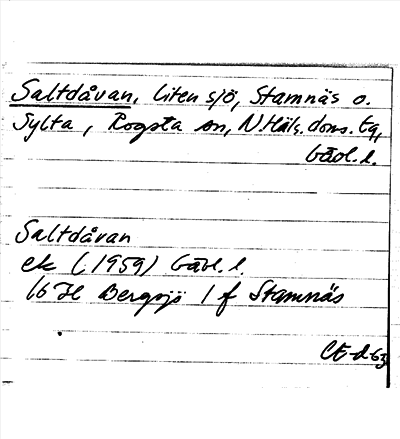 Saltdåvan, liten sjö, Stamnäs o.
Sylta, Rogsta sn, N.Häls. doms. tg,
Gävl. l.
Saltdåvan
ek (1959) Gävl. l.
16 H Bergsjö 1 f Stamnäs
CE-d 63